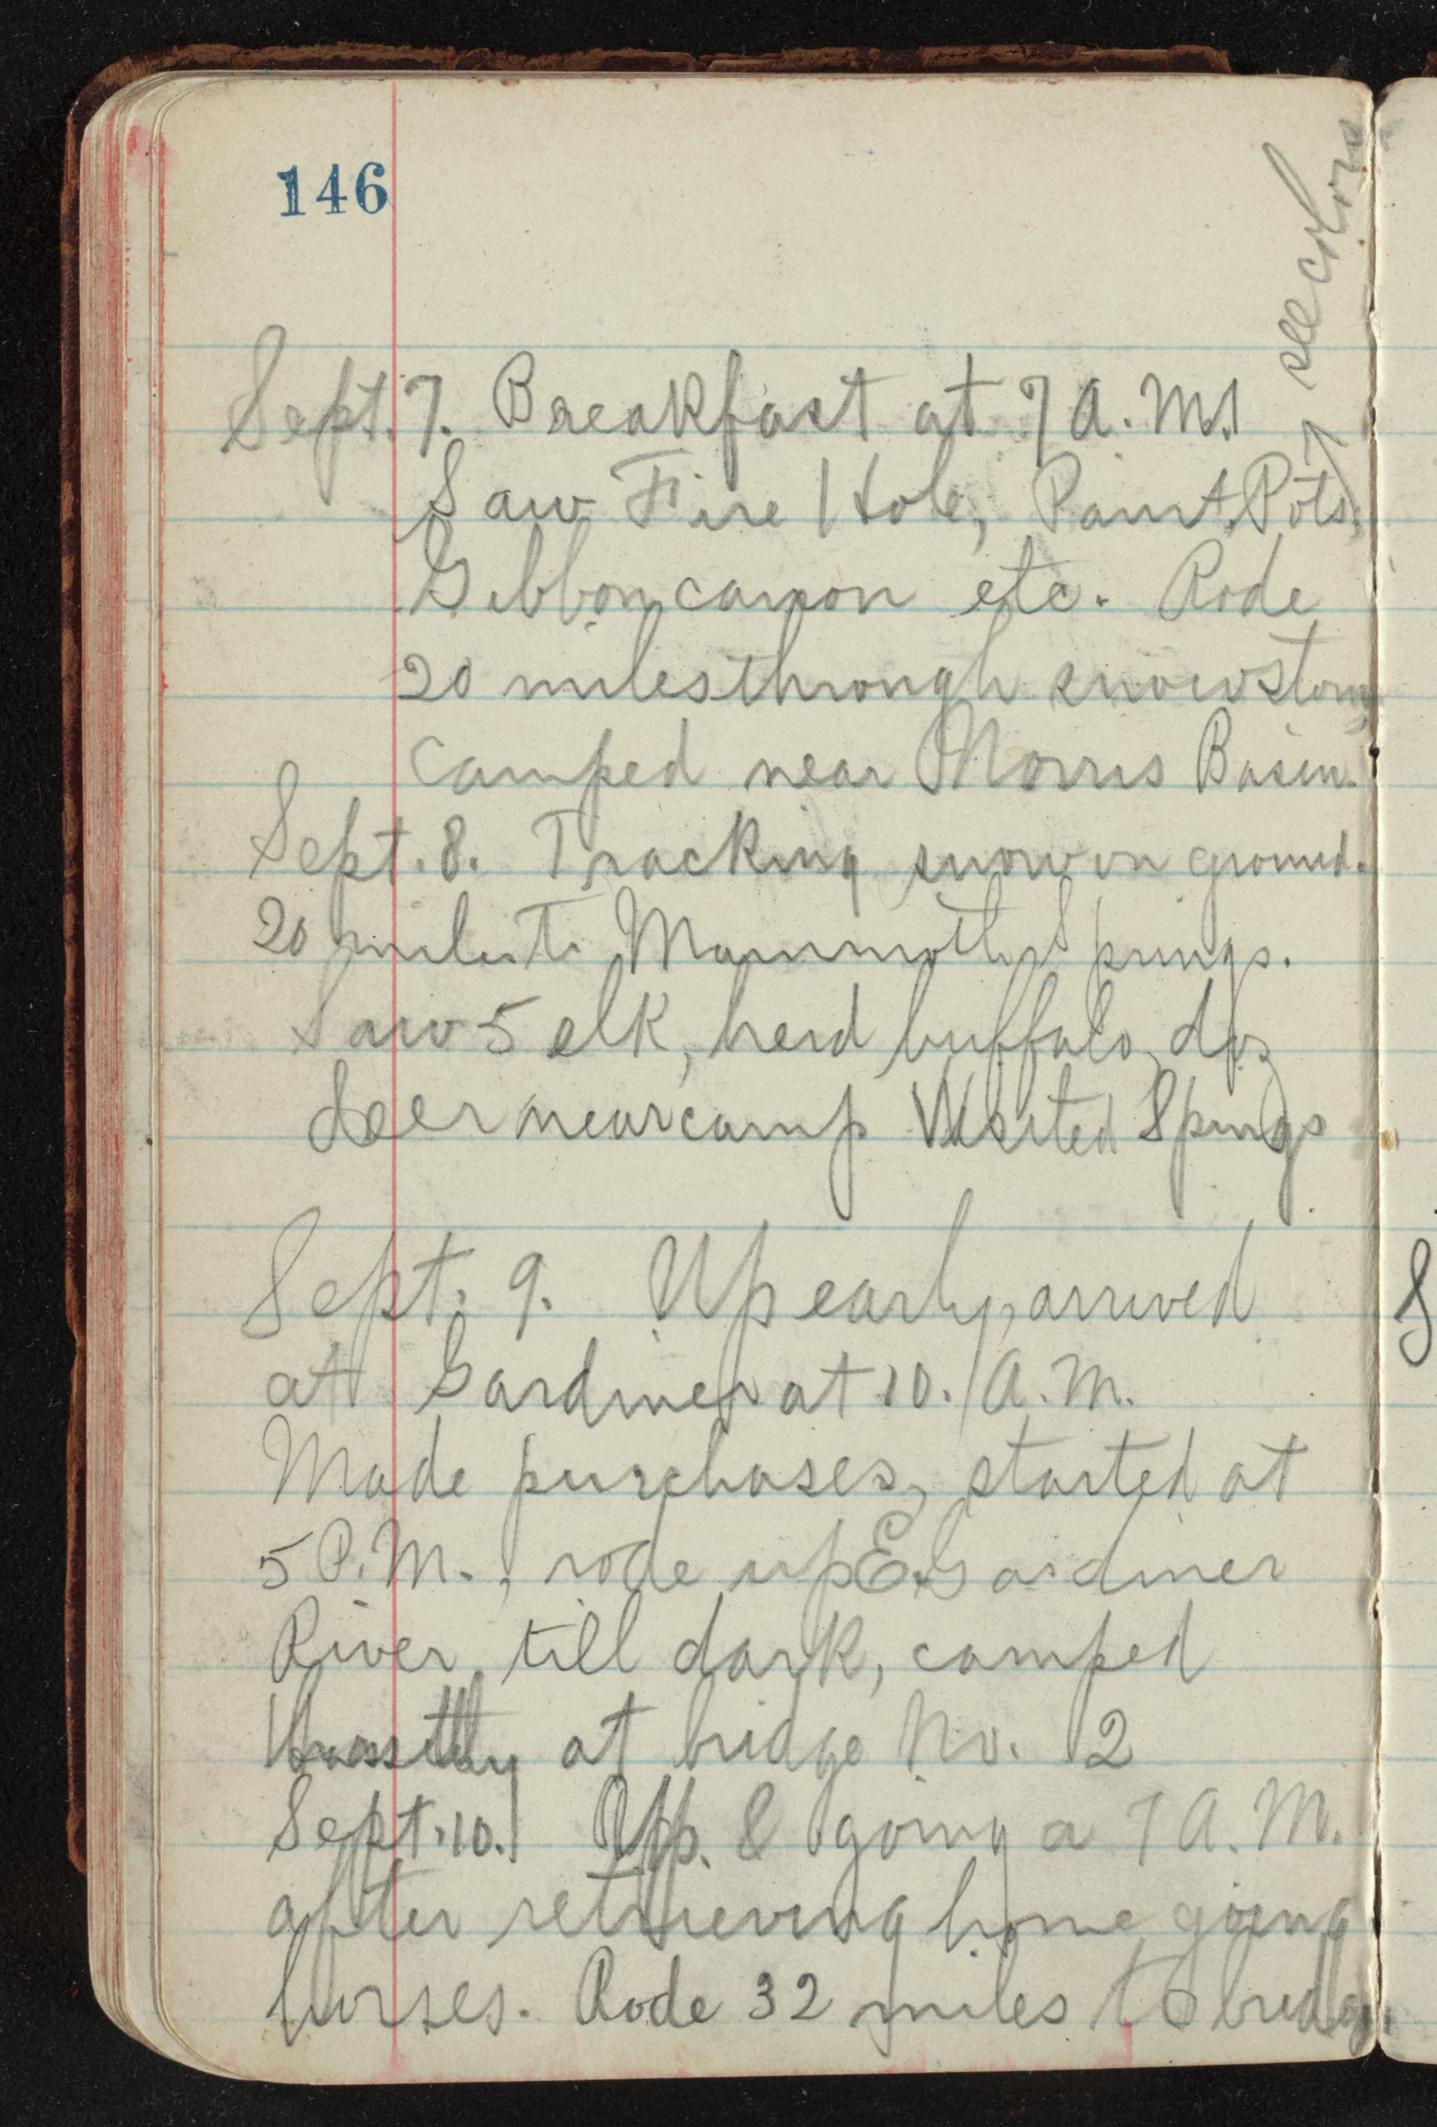 146
see colors
Sept. 7. Breakfast at 7 A.M.
Saw Fire Hole, Paint Pots,
Gibbon canon etc. Rode
20 miles through snowstorm
Camped near Norris Basin.
Sept. 8. Tracking snow on ground.
20 miles to Mammoth Springs.
Saw 5 elk, herd buffalo, doz
deer near camp Visited Springs
Sept. 9. Up early, arrived
at Gardiner at 10. A.M.
Made purchases, started at
5 P.M., rode up E. Gardiner
River till dark, camped
at bridge No. 2
Sept. 10. Up & going a 7 A.M.
after retrieving home going
horses. Rode 32 miles to bridge.
S